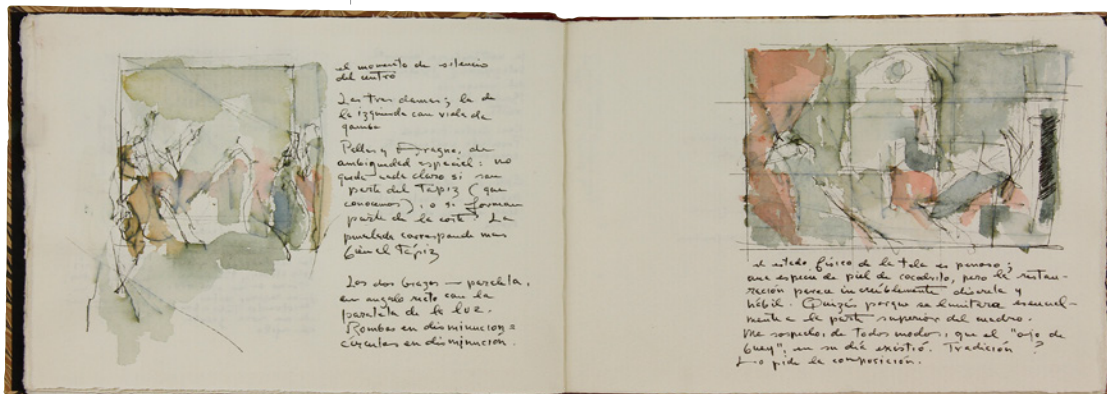 el momento de silencio
del centro
Las tres damas; la de
la izquierda con viola de
gamba
Pallas y Aragne, de
ambigüedad espacial: no
queda nada claro si son
parte del Tapiz (que
conocemos), o si forman
parte de la corte? La
pincelada corresponde mas
bien al Tapiz
Los dos brazos — paralela,
en angulo recto con la
paralela de la luz.
Rombos en disminucion =
circulos en disminucion.
el estado físico de la tela es penoso;
una especie de piel de cocodrilo, pero la restau-
ración parece increíblemente discreta y
hábil. Quizás porque se limitara esencial-
mente a la parte superior del cuadro.
Me sospecho, de todos modos, que el "ojo de
buey", en su día existió. Tradición?
Lo pide la composición.